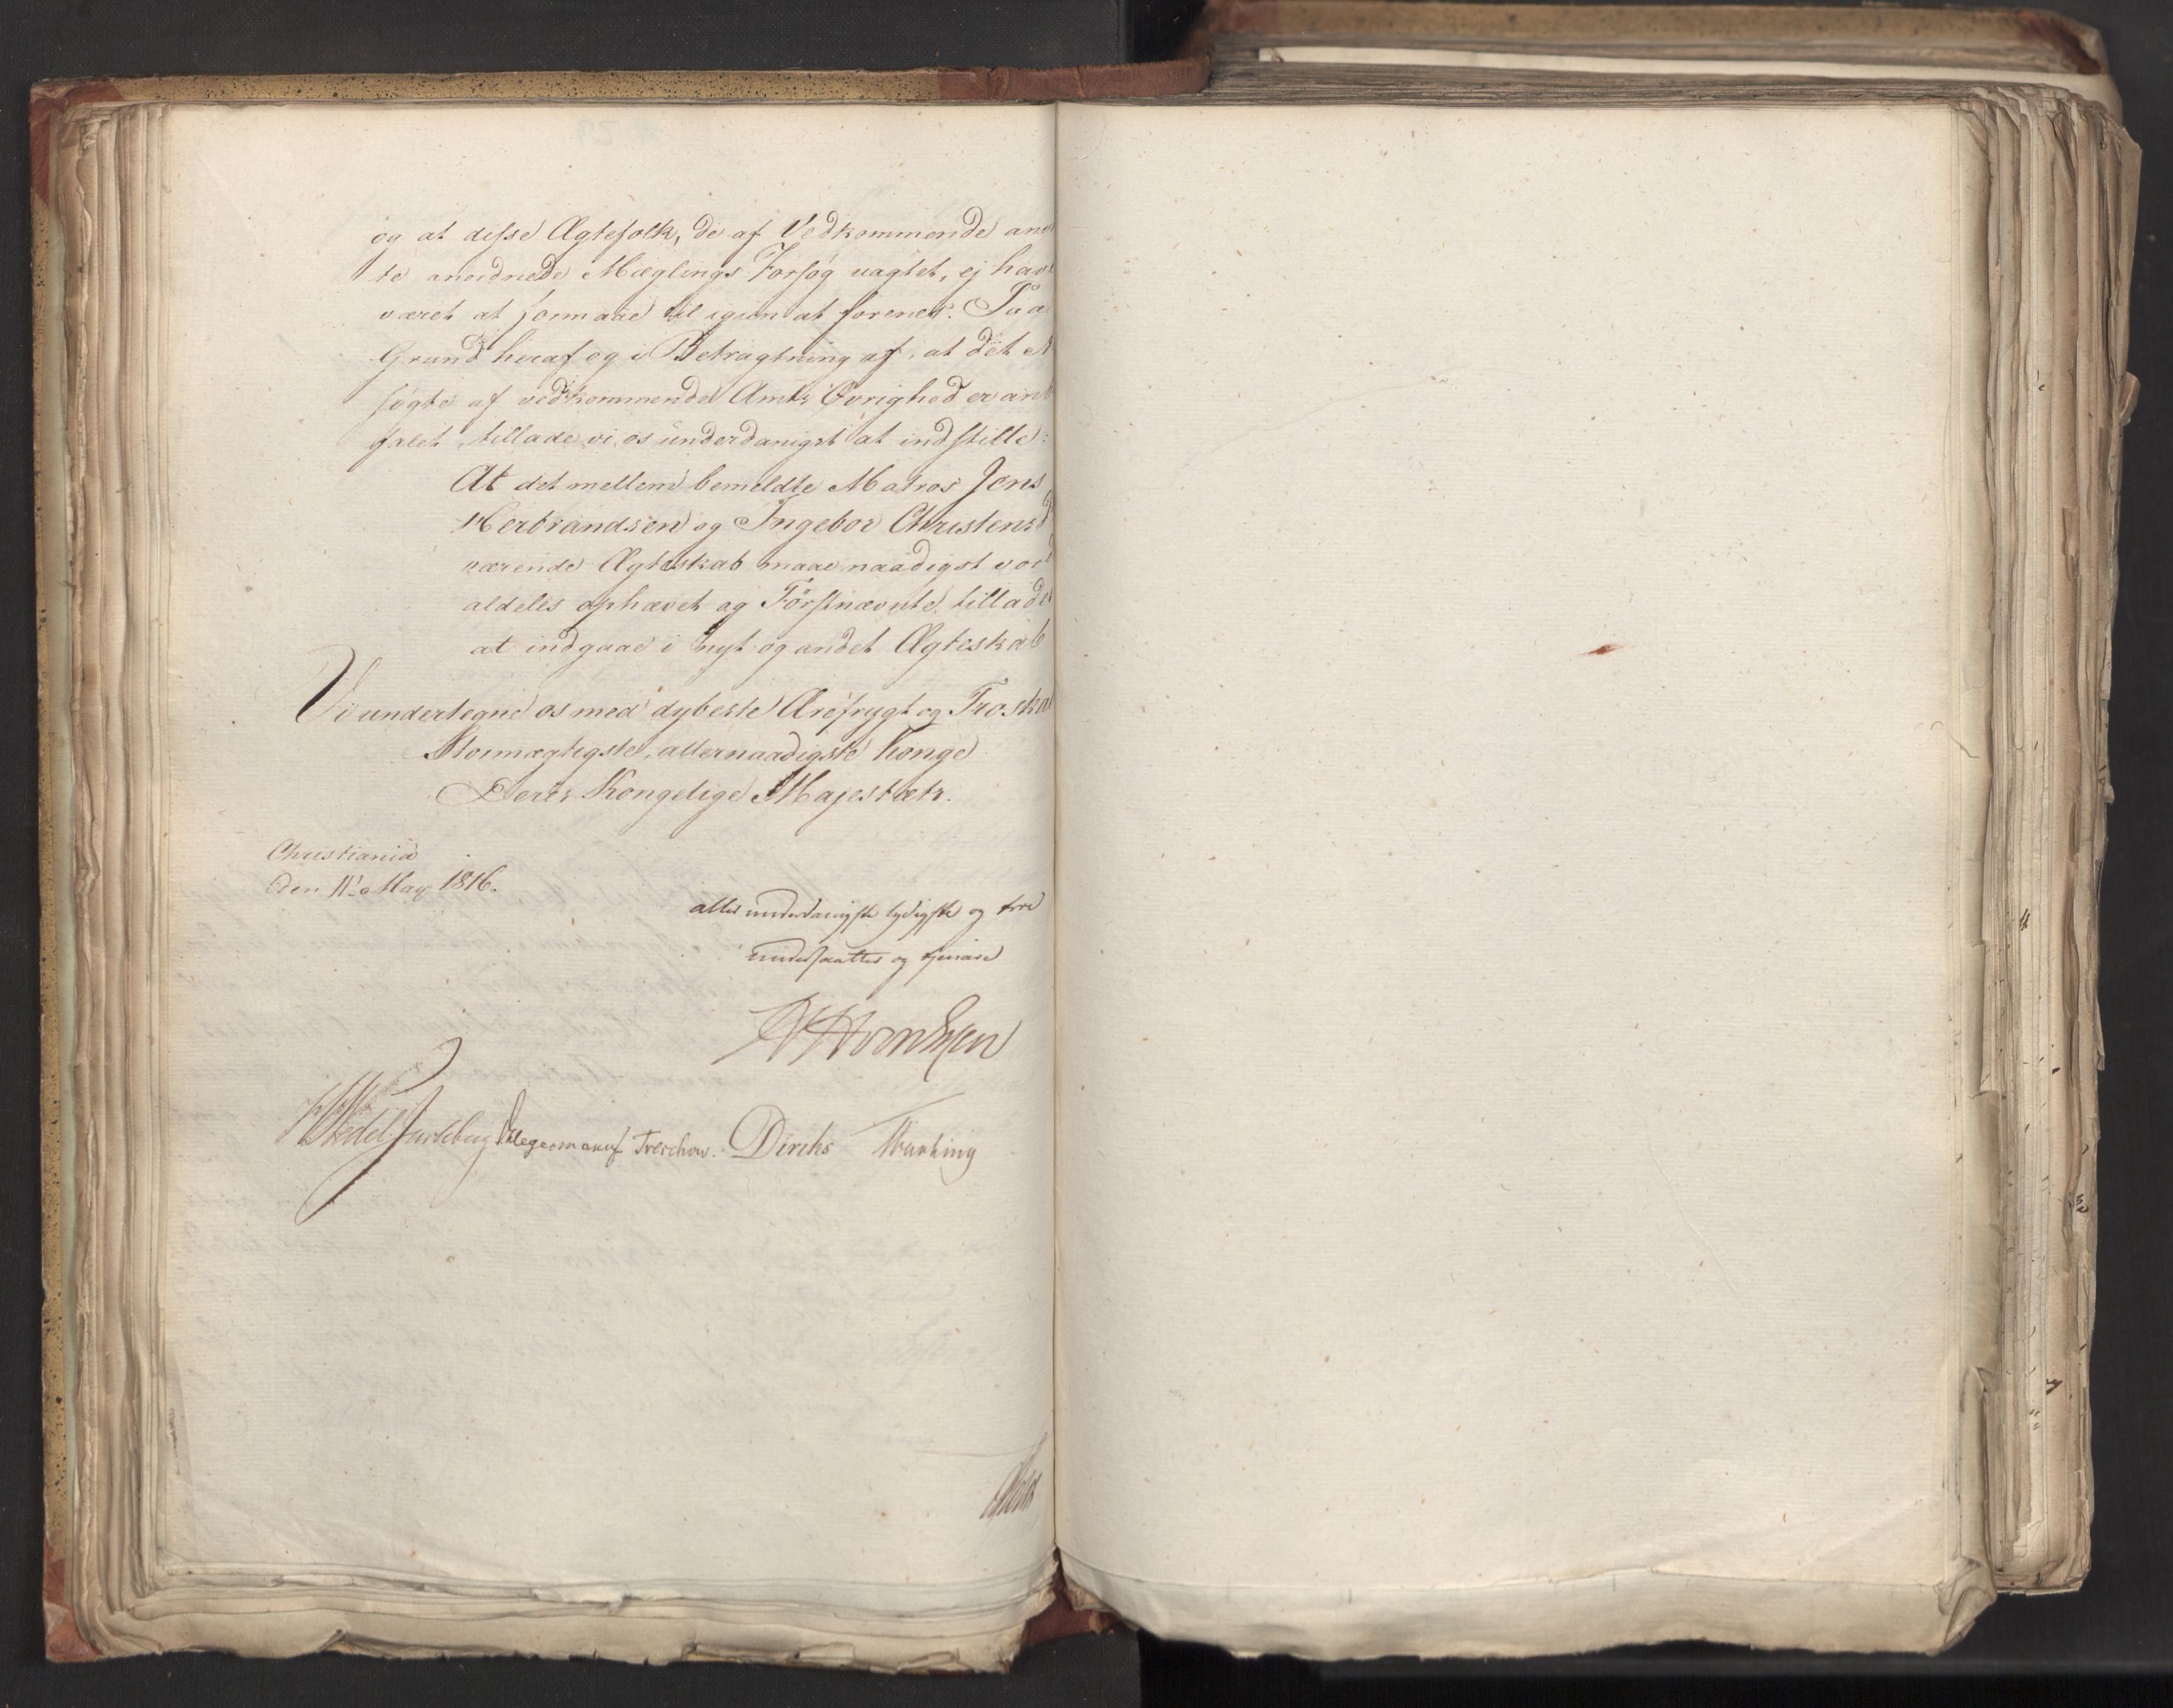 og at disse Ægtefolk, de af Vedkommende
te anordnede Mæglings Forsøg uagtet, ej hav
været at formaae til igien at forenes. Paa
Grund heraf og i Betragtning af, at det
søgte af vedkommende Amts Øvrighed er an
falet, tillade vi os underdanigst at indstille:
At det mellem bemeldte Matros Jens
Herbrandsen og Ingebor Christensd
værende Ægteskab maae naadigst vor
aldeles ophævet og Førstnævnte tillades
at indgaae i nyt og andet Ægteskab
Vi undertegne os med dybeste Ærefrygt og Troska
Stormægtigste, allernaadigste Konge
Deres Kongelige Majestæts.
Christiania
den 11te May 1816.
aller underdanigste lydigste og troe
undersaatter og tjenare
Wedel Jarlsberg Hegermann Treschow. Diriks